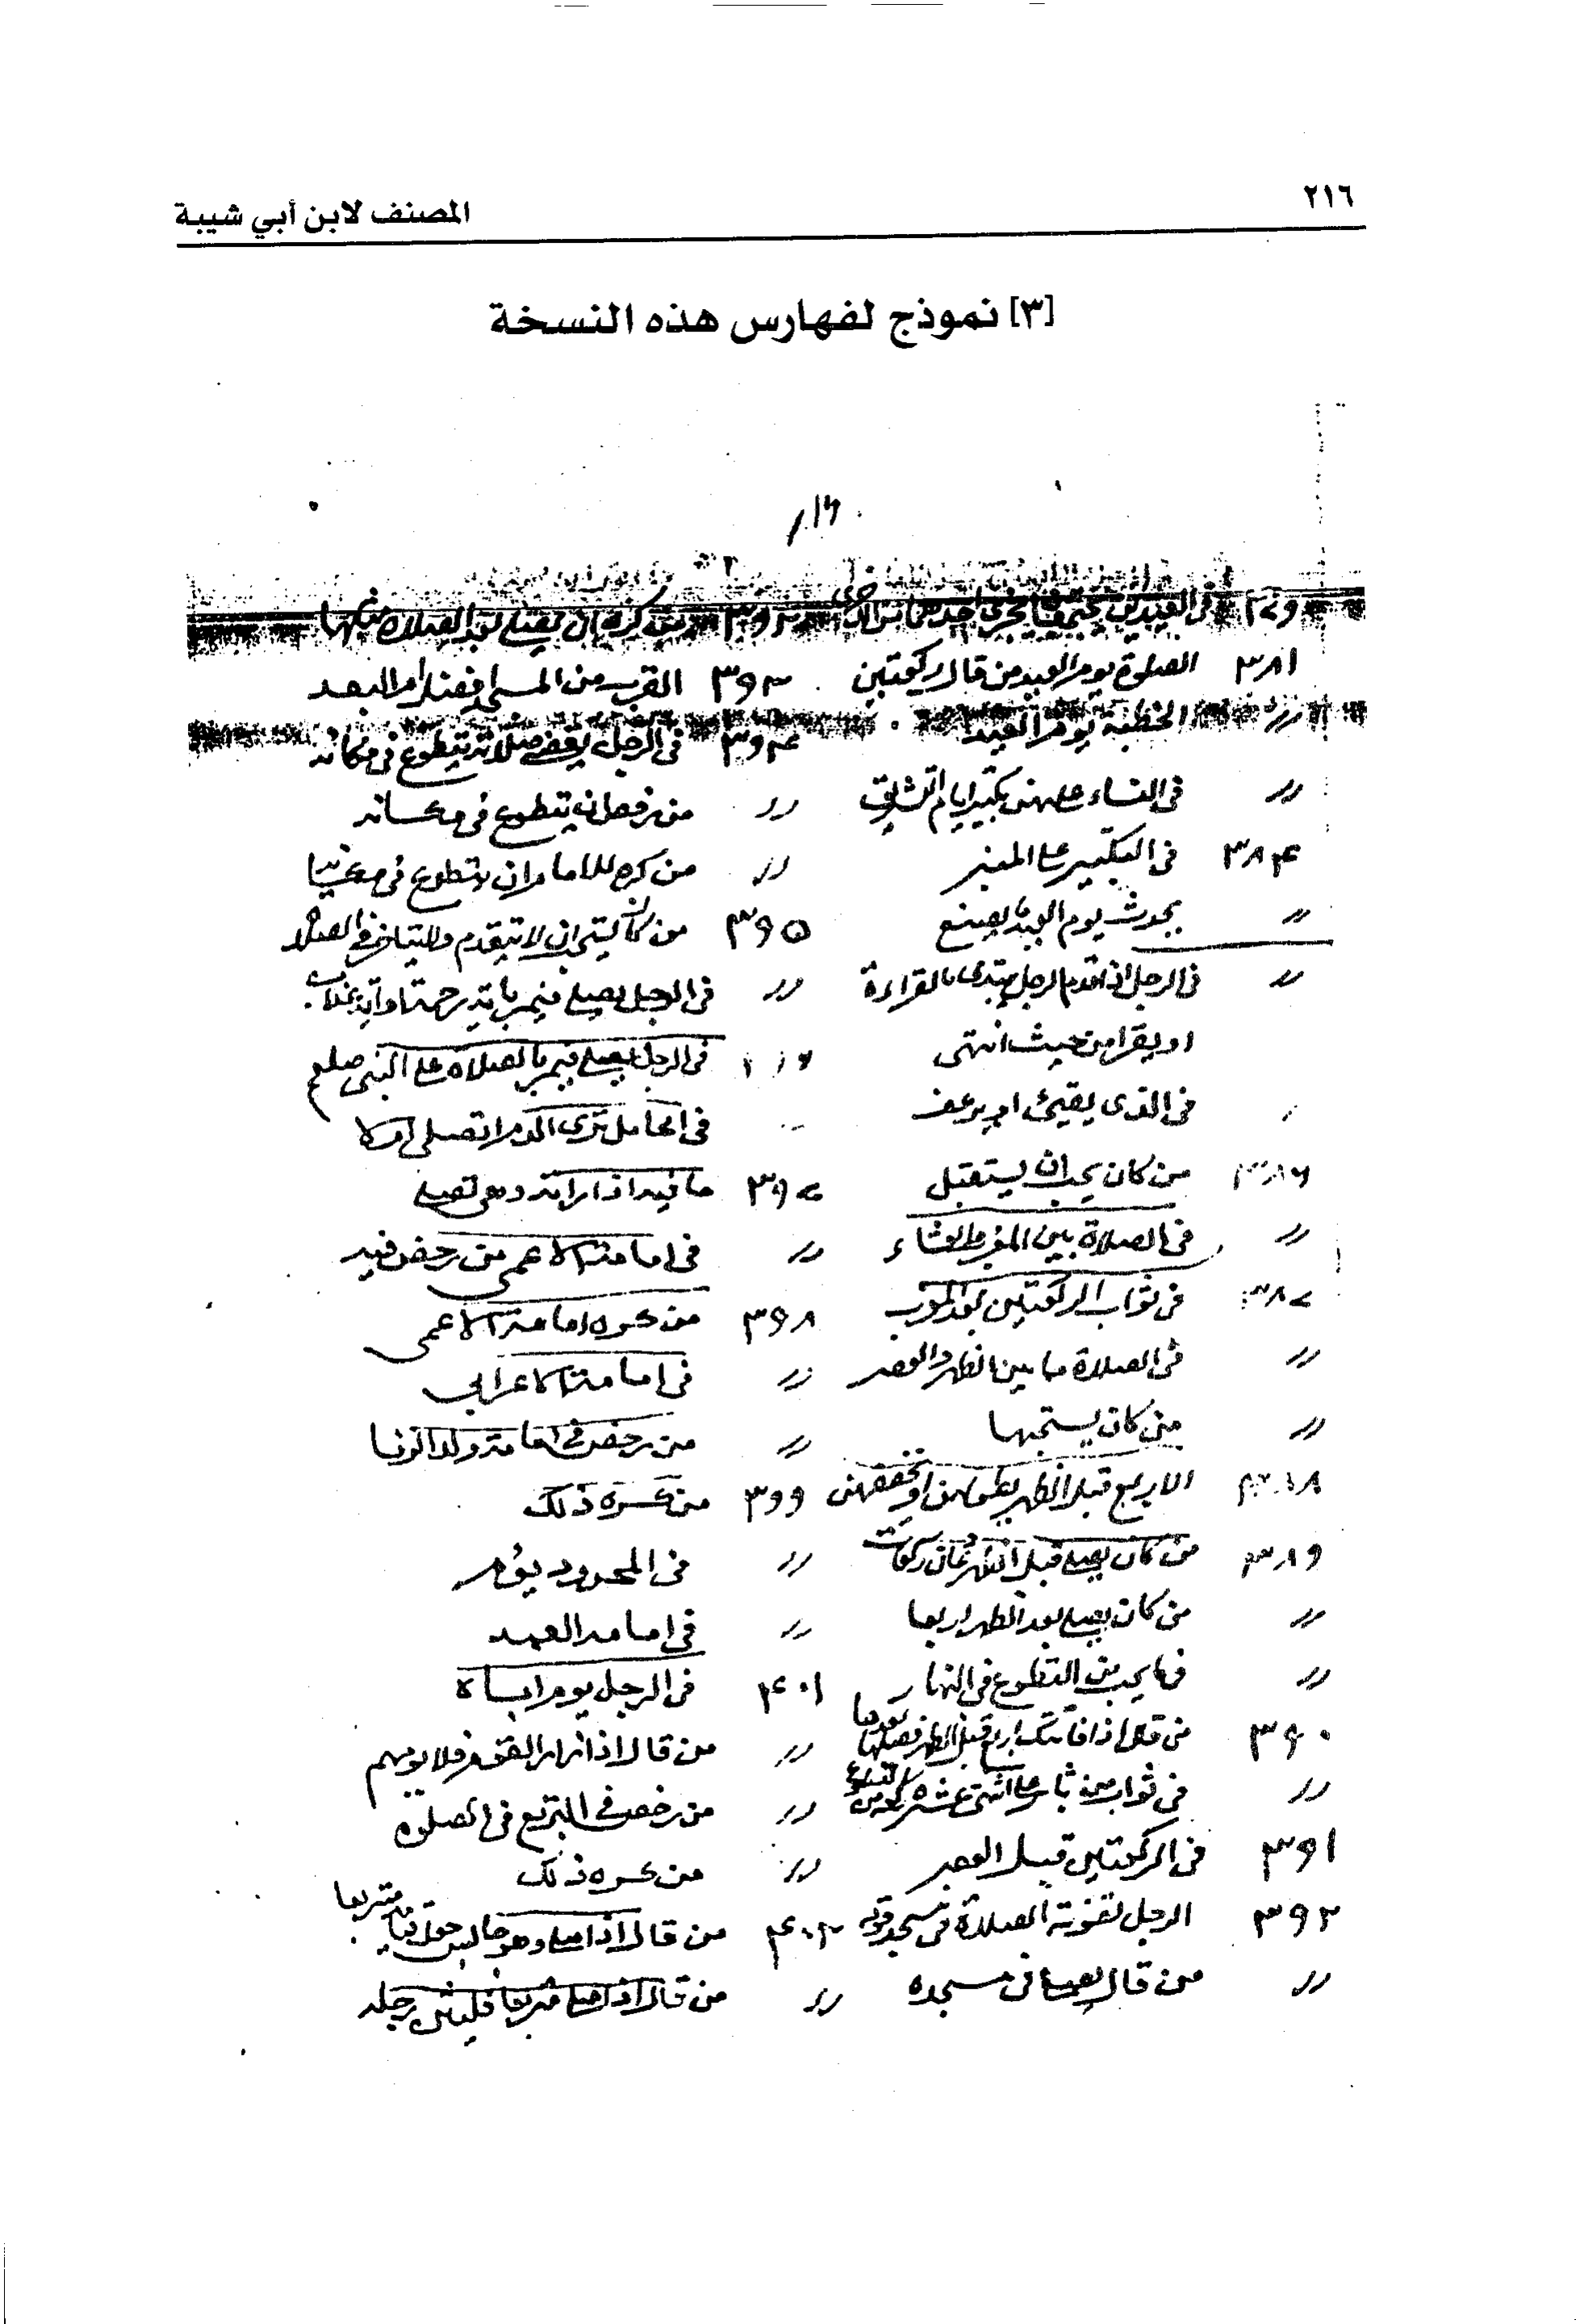 ٢١٦
المصنف لابن أبي شيبة
[٣] نموذج لفهارس هذه النسخة
في العيدين يجتمعان يجزى احدهما من الاخرى
٣٨١ الصلوة يوم العيد من قال ركعتين
〃 الخطبة يوم العيد
〃 فى النساء عليهن تكبير ايام التشريق
٣٨٤ فى التكبير على المنبر
〃 يحدث يوم العيد ما يصنع
〃 فى الرجل اذا قدم الرجل يبتدى بالقراءة
او يقرا من حيث انتهى
فى الذى يقيئ او يرعف
٣٨٦ من كان يحب ان يستقبل
〃 فى الصلاة بين المغرب والعشاء
٣٨٧ فى ثواب الركعتين بعد المغرب
〃 فى الصلاة ما بين الظهر والعصر
〃 من كان يستحبها
٣٨٨ الاربع قبل الظهر يطولهن او يخففهن
٣٨٩ من كان يصلى قبل الظهر ثمان ركعات
〃 من كان يصلى بعد الظهر اربعا
〃 فيما يحب من التطوع فى النهار
٣٩٠ من قال اذا فاتتك اربع قبل الظهر فصلها بعدها
〃 فى ثواب من ثابر على اثنتى عشرة ركعة من التطوع
٣٩١ فى الركعتين قبل العصر
٣٩٢ الرجل تفوته الصلاة فى مسجد قومه
〃 من قال يصلى فى مسجده
من كره ان يصلى بعد الصلاة مثلها
٣٩٣ القرب من المسجد افضل ام البعد
٣٩٤ فى الرجل يقضى صلاته يتطوع فى مكانه
〃 من رخص ان يتطوع فى مكانه
〃 من كره للامام ان يتطوع فى مكانه
٣٩٥ من كان يستحب ان لا يتقدم ولا يتاخر فى الصلاة
〃 فى الرجل يصلى فيمر باية رحمة او اية عذاب
فى الرجل يصلى فيمر بالصلاة على النبى صلعم
فى الحامل ترى الدم اتصلى ام لا
٣٩٧ ما فيه اذا راته وهى تصلى
〃 فى امامة الاعمى من رخص فيه
٣٩٨ من كره امامة الاعمى
〃 فى امامة الاعرابى
〃 من رخص فى امامة ولد الزنا
٣٩٩ من كره ذلك
〃 فى المحدود يؤم
〃 فى امامة العبد
٤٠١ فى الرجل يوم اباه
〃 من قال اذا زار القوم فلا يومهم
〃 من رخص فى التربع فى الصلوة
〃 من كره ذلك
٤٠٢ من قال اذا صلى وهو جالس جعل قيامه متربعا
〃 من قال اذا صلى متربعا فليثن رجله